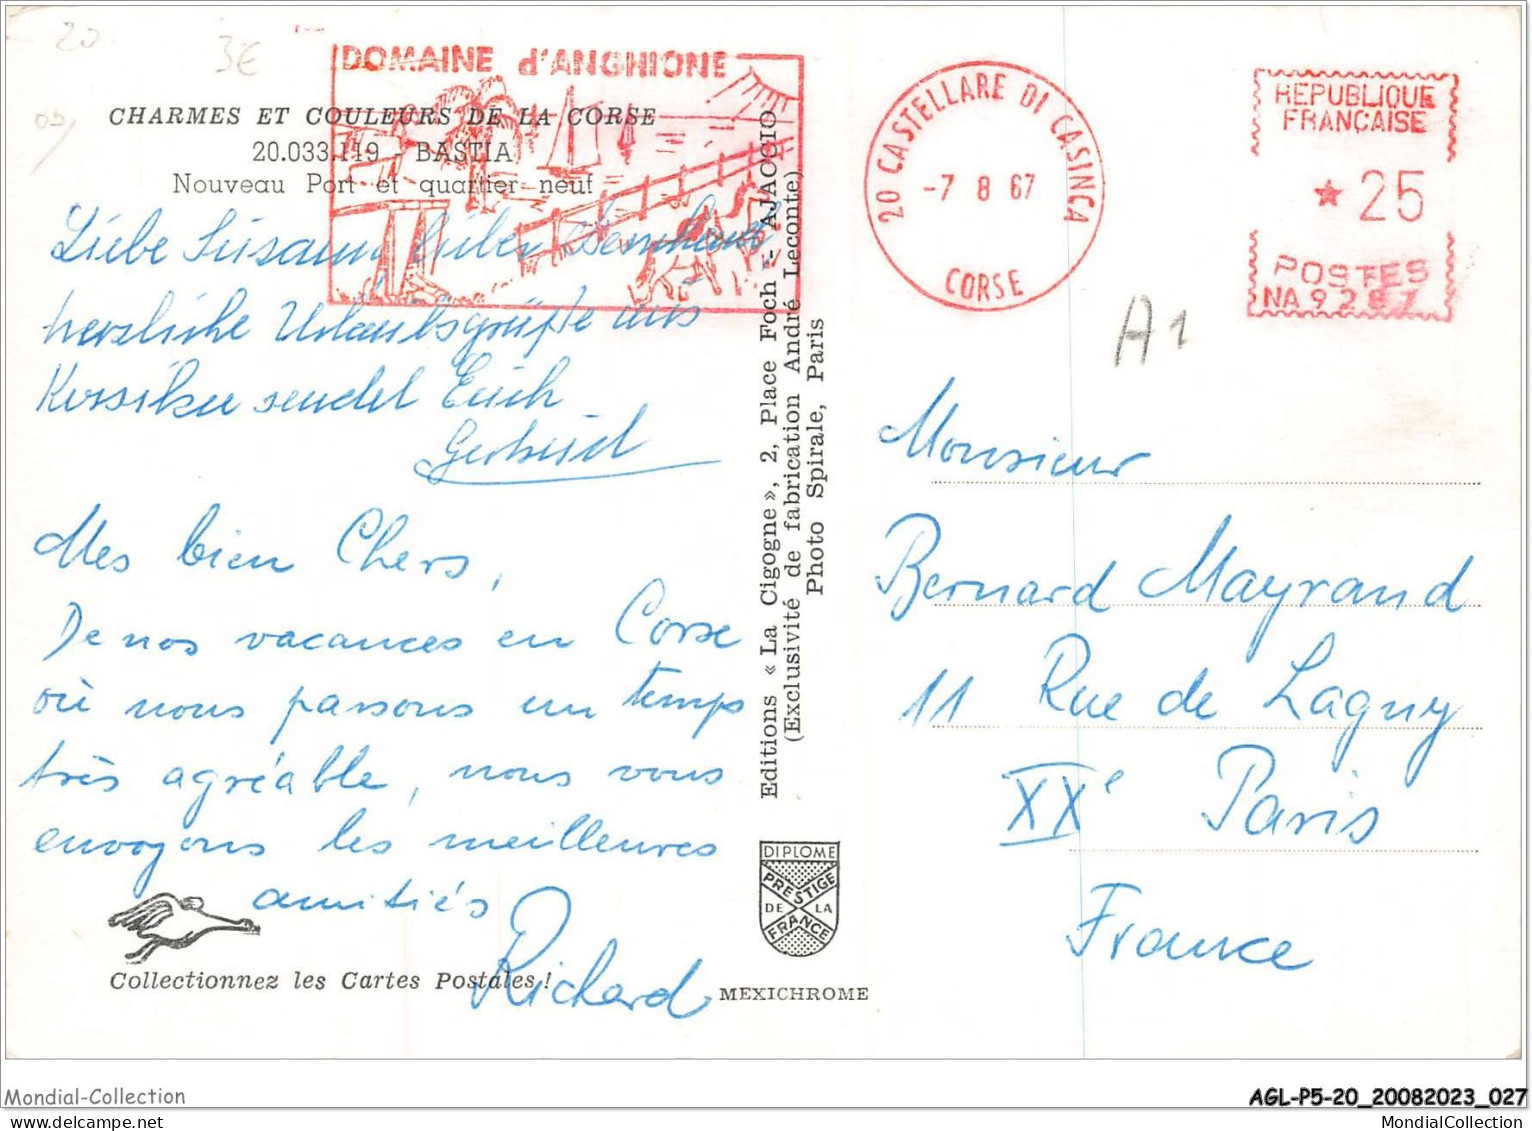 20
3€
DOMAINE d'ANGHIONE
CHARMES ET COULEURS DE LA CORSE
20.033.119 BASTIA
Nouveau Port et quartier neuf
Liebe Susanne, lieber Bernhard
herzliche Urlaubsgrüße aus
Korsika sendet Euch
Gertrud
Mes bien Chers,
De nos vacances en Corse
où nous passons un temps
très agréable, nous vous
envoyons les meilleures
amitiés
Richard
Collectionnez les Cartes Postales !
Editions « La Cigogne », 2, Place Foch - AJACCIO
(Exclusivité de fabrication André Leconte)
Photo Spirale, Paris
DIPLOME
PRESTIGE
DE LA
FRANCE
MEXICHROME
20 CASTELLARE DI CASINCA
-7 8 67
CORSE
REPUBLIQUE
FRANÇAISE
* 25
POSTES
NA 9287
A1
Monsieur
Bernard Mayrand
11 Rue de Lagny
XXe Paris
France
Mondial-Collection
AGL-P5-20_20082023_027
MondialCollection